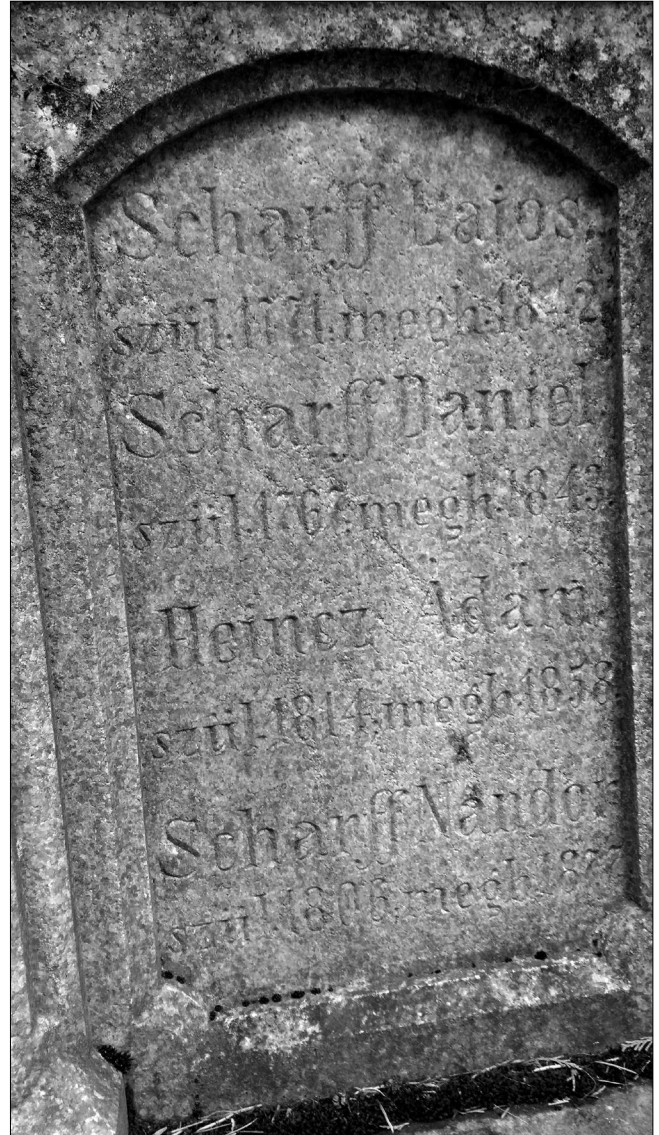 Scharff Lajos.
szül.1771.megh.1842.
Scharff Daniel.
szül.1767.megh.1843.
Heincz Adám.
szül.1814.megh.1858.
Scharff Nándor
szül.1806.megh.1877